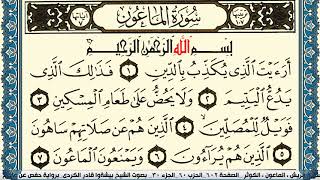 سُورَةُ الْمَاعُونِ
بِسْمِ اللَّهِ الرَّحْمَٰنِ الرَّحِيمِ
أَرَءَيْتَ الَّذِى يُكَذِّبُ بِالدِّينِ ١ فَذَٰلِكَ الَّذِى
يَدُعُّ الْيَتِيمَ ٢ وَلَا يَحُضُّ عَلَىٰ طَعَامِ الْمِسْكِينِ ٣
فَوَيْلٌ لِّلْمُصَلِّينَ ٤ الَّذِينَ هُمْ عَن صَلَاتِهِمْ سَاهُونَ
٥ الَّذِينَ هُمْ يُرَآءُونَ ٦ وَيَمْنَعُونَ الْمَاعُونَ ٧
قريش ، الماعون ، الكوثر الصفحة ٦٠٢ الحزب ٦٠ الجزء ٣٠ بصوت الشيخ بيشةوا قادر الكردى برواية حفص عن